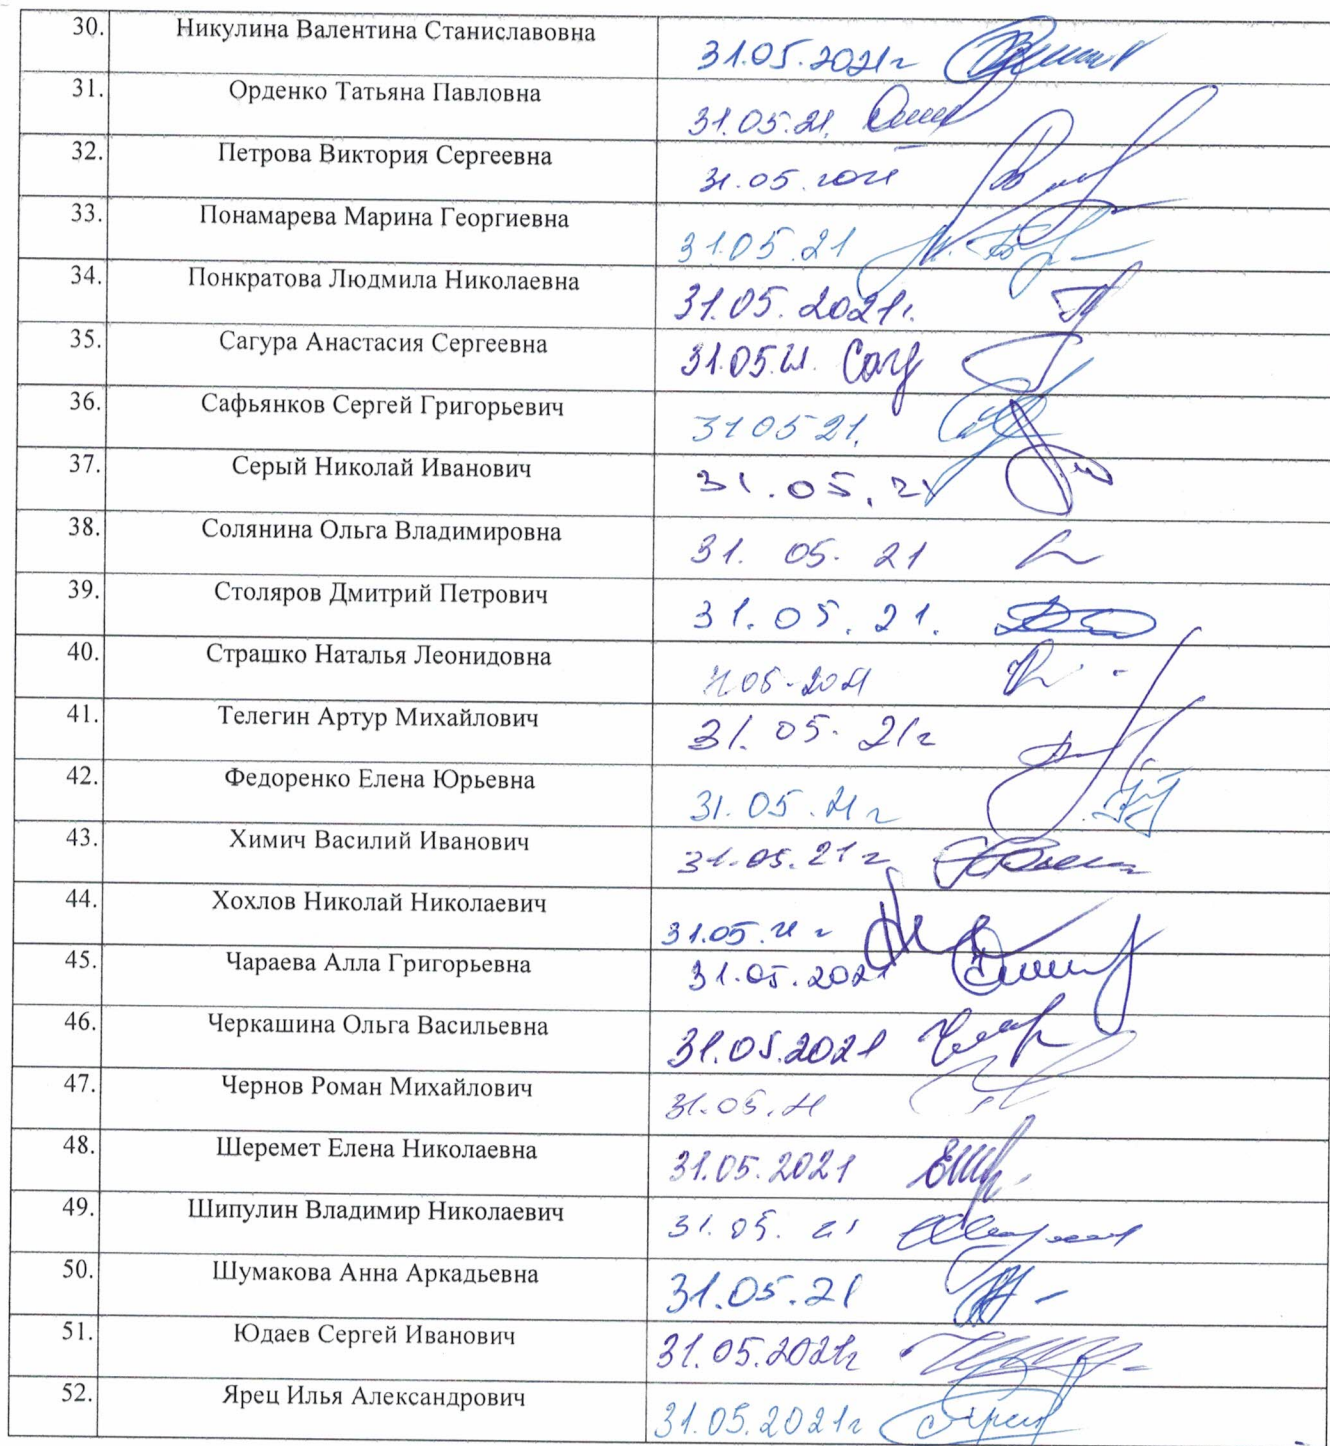 30. Никулина Валентина Станиславовна 31.05.2021г
31. Орденко Татьяна Павловна 31.05.21.
32. Петрова Виктория Сергеевна 31.05.2021
33. Понамарева Марина Георгиевна 31.05.21
34. Понкратова Людмила Николаевна 31.05.2021г.
35. Сагура Анастасия Сергеевна 31.05.21. Сагу
36. Сафьянков Сергей Григорьевич 31 05 21.
37. Серый Николай Иванович 31.05.21
38. Солянина Ольга Владимировна 31. 05. 21
39. Столяров Дмитрий Петрович 31.05.21.
40. Страшко Наталья Леонидовна
41. Телегин Артур Михайлович 31.05.21г
42. Федоренко Елена Юрьевна 31.05.21г
43. Химич Василий Иванович 31.05.21г
44. Хохлов Николай Николаевич 31.05.21г
45. Чараева Алла Григорьевна 31.05.2021
46. Черкашина Ольга Васильевна 31.05.2021
47. Чернов Роман Михайлович 31.05.21
48. Шеремет Елена Николаевна 31.05.2021
49. Шипулин Владимир Николаевич 31.05.21
50. Шумакова Анна Аркадьевна 31.05.21
51. Юдаев Сергей Иванович 31.05.2021г
52. Ярец Илья Александрович 31.05.2021г